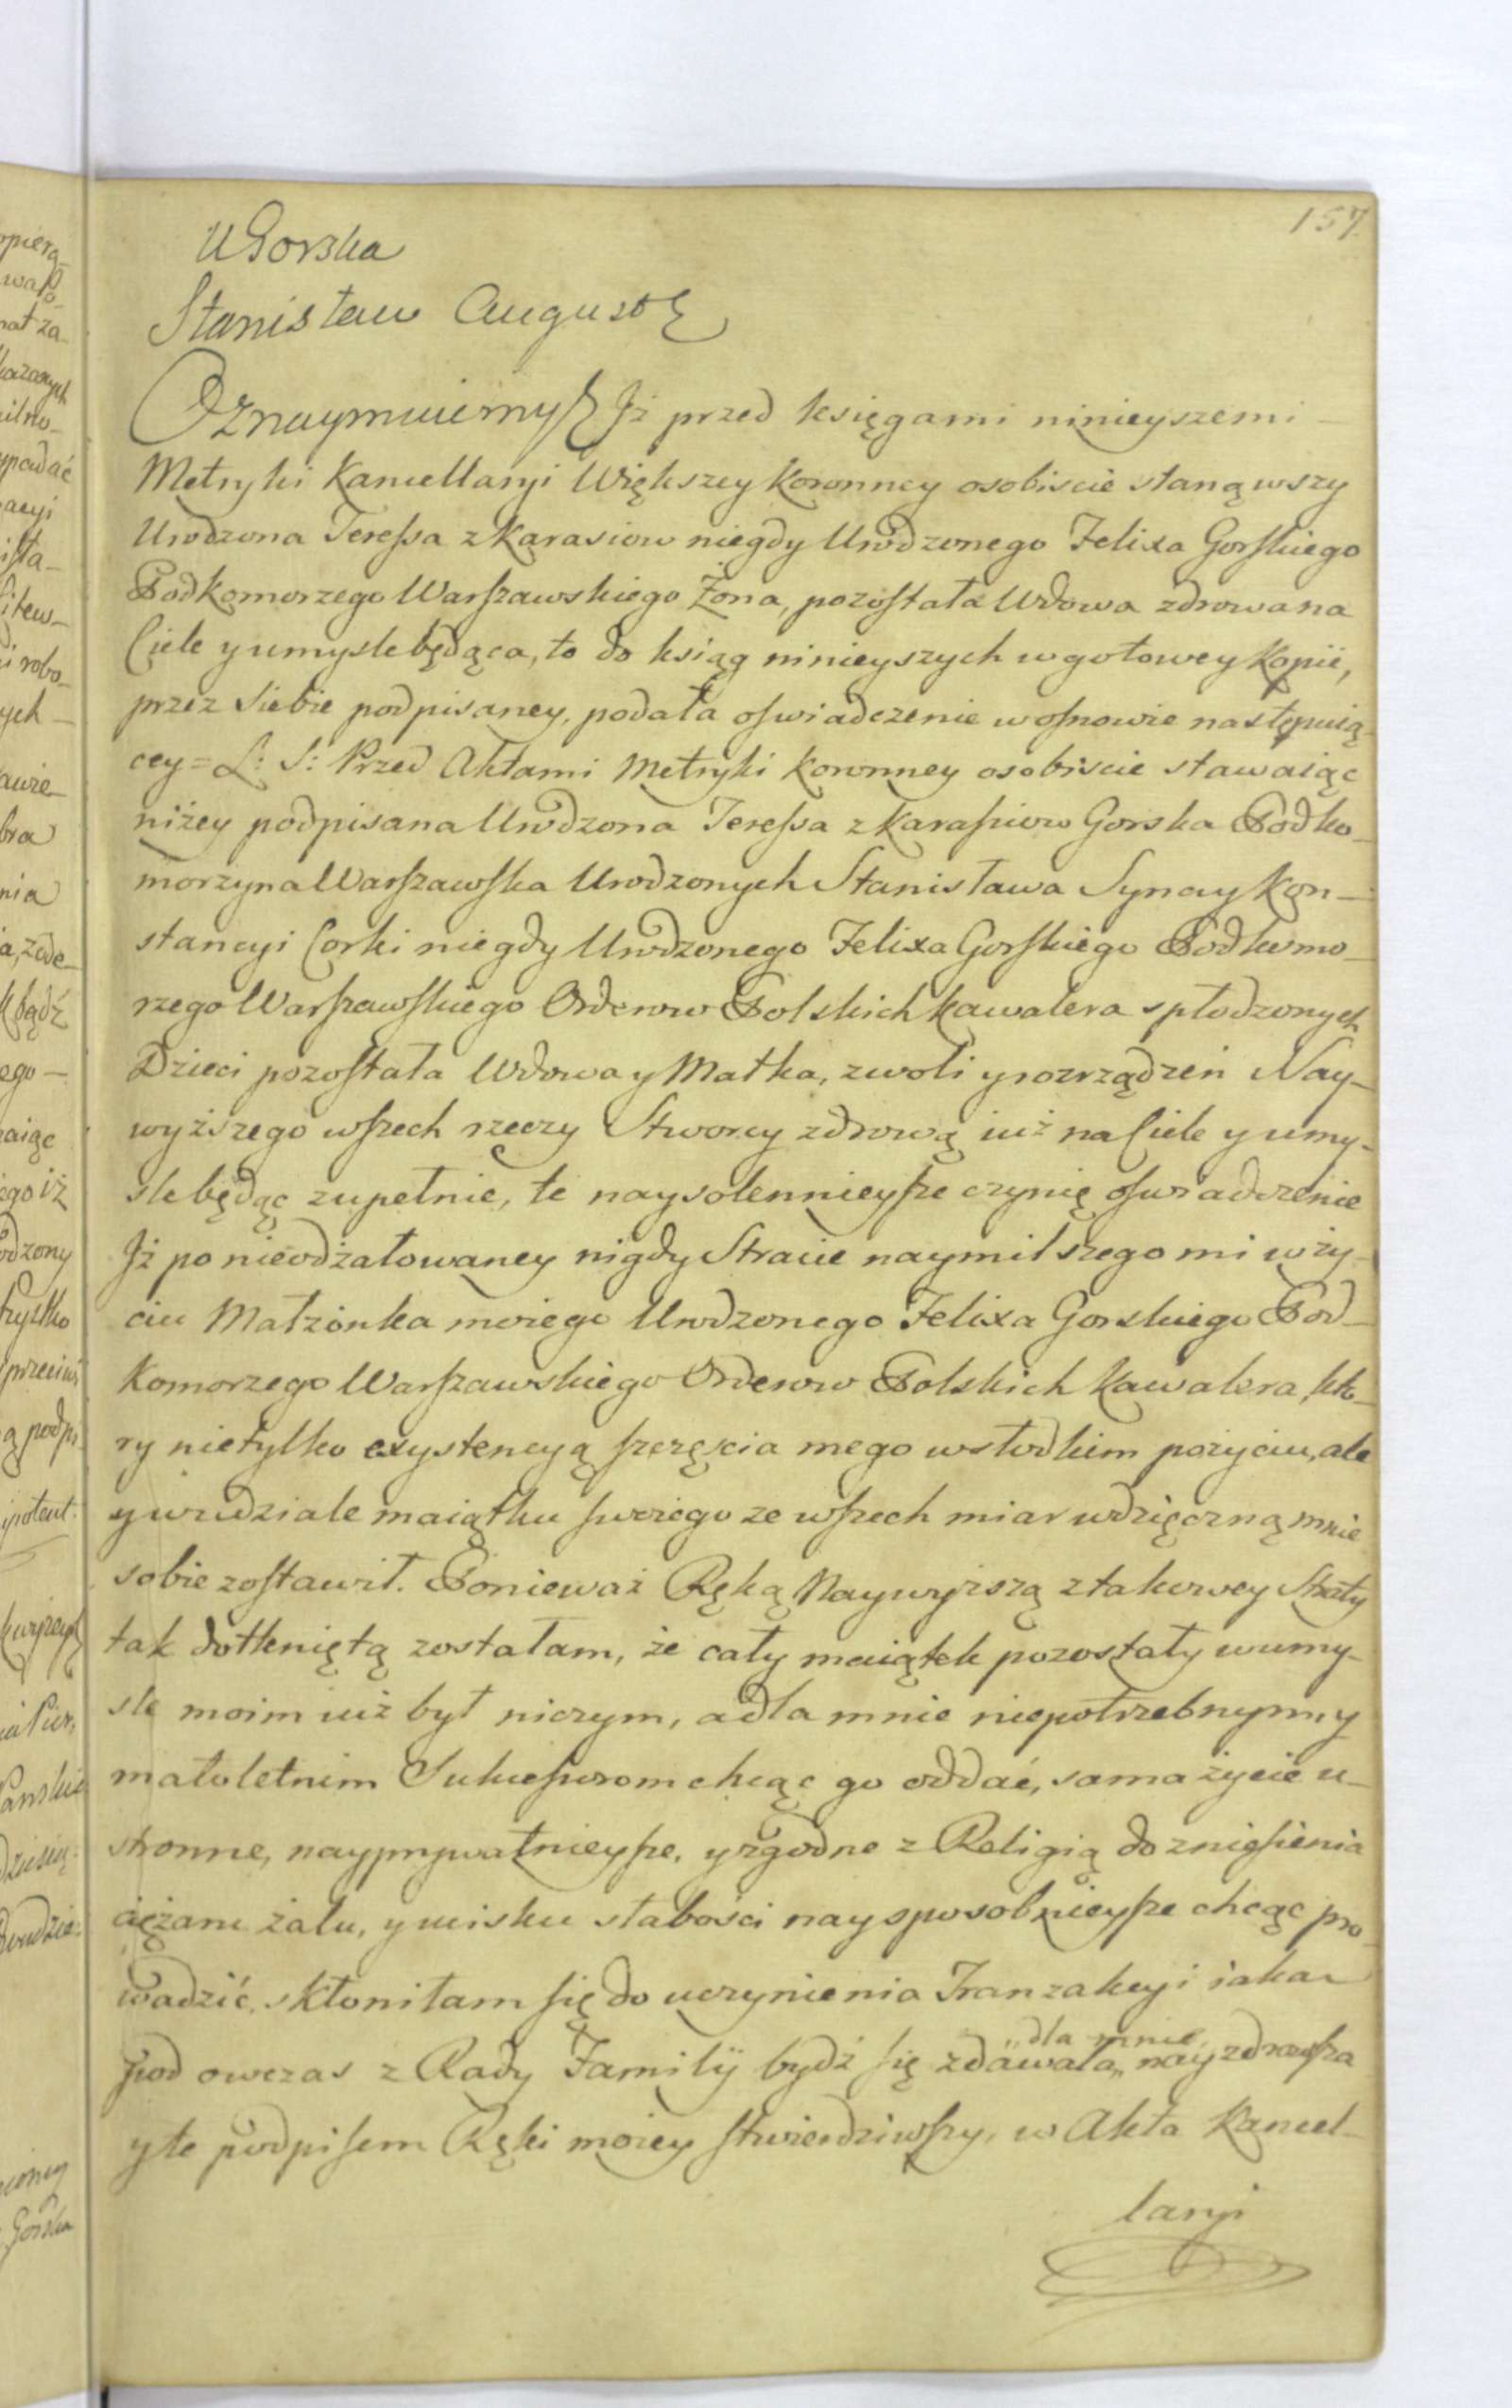 157.
UGorska
Stanisław August
Oznaymuiemy Jż przed księgami ninieyszemi
Metryki Kancellaryi Większey Koronney osobiscie stanąwszy
Urodzona Teressa z Karasiow niegdy Urodzonego Felixa Gorskiego
Podkomorzego Warszawskiego Żona, pozostała Wdowa zdrowa na
Ciele y umysle będąca, to do ksiąg ninieyszych w gotowey Kopii,
przez Siebie podpisaney, podała oswiadczenie w osnowie następuią-
cey = L: S: Przed Aktami Metryki Koronney osobiscie stawaiąc
niżey podpisana Urodzona Teressa z Karasiow Gorska Podko-
morzyna Warszawska Urodzonych Stanisława Syna y Kon-
stancyi Corki niegdy Urodzonego Felixa Gorskiego Podkomo-
rzego Warszawskiego Orderow Polskich Kawalera spłodzonych
Dzieci pozostała Wdowa y Matka, z woli y rozrządzeń Nay-
wyższego wszech rzeczy Stworcy zdrową iuż na Ciele y umy-
sle będąc zupełnie, te naysolennieysze czynię oswiadczenie
Jż po nieodżałowaney nigdy Stracie naymilszego mi w ży-
ciu Małżonka moiego Urodzonego Felixa Gorskiego Pod-
komorzego Warszawskiego Orderow Polskich Kawalera, kto-
ry nietylko exystencyą szczęscia mego w słodkiem pożyciu, ale
y w udziale maiątku swoiego ze wszech miar wdzięczną mnie
sobie zostawił. Ponieważ Ręką Naywyższą z takowey Straty
tak dotkniętą zostałam, że cały maiątek pozostały w umy-
sle moim iuż był niczym, a dla mnie niepotrzebnym, y
małoletnim Sukcessorom chcąc go oddać, sama życie u-
stronne, nayprywatnieysze, y zgodne z Religią do zniesienia
ciężaru żalu, y ucisku słabości naysposobnieysze chcąc pro-
wadzić, skłoniłam się do uczynienia Tranzakcyi iaka
pod owczas z Rady Familij bydź się zdawała „dla mnie„ nayzdrowsza
y te podpisem Ręki moiey stwierdziwszy, w Akta Kancel-
laryi